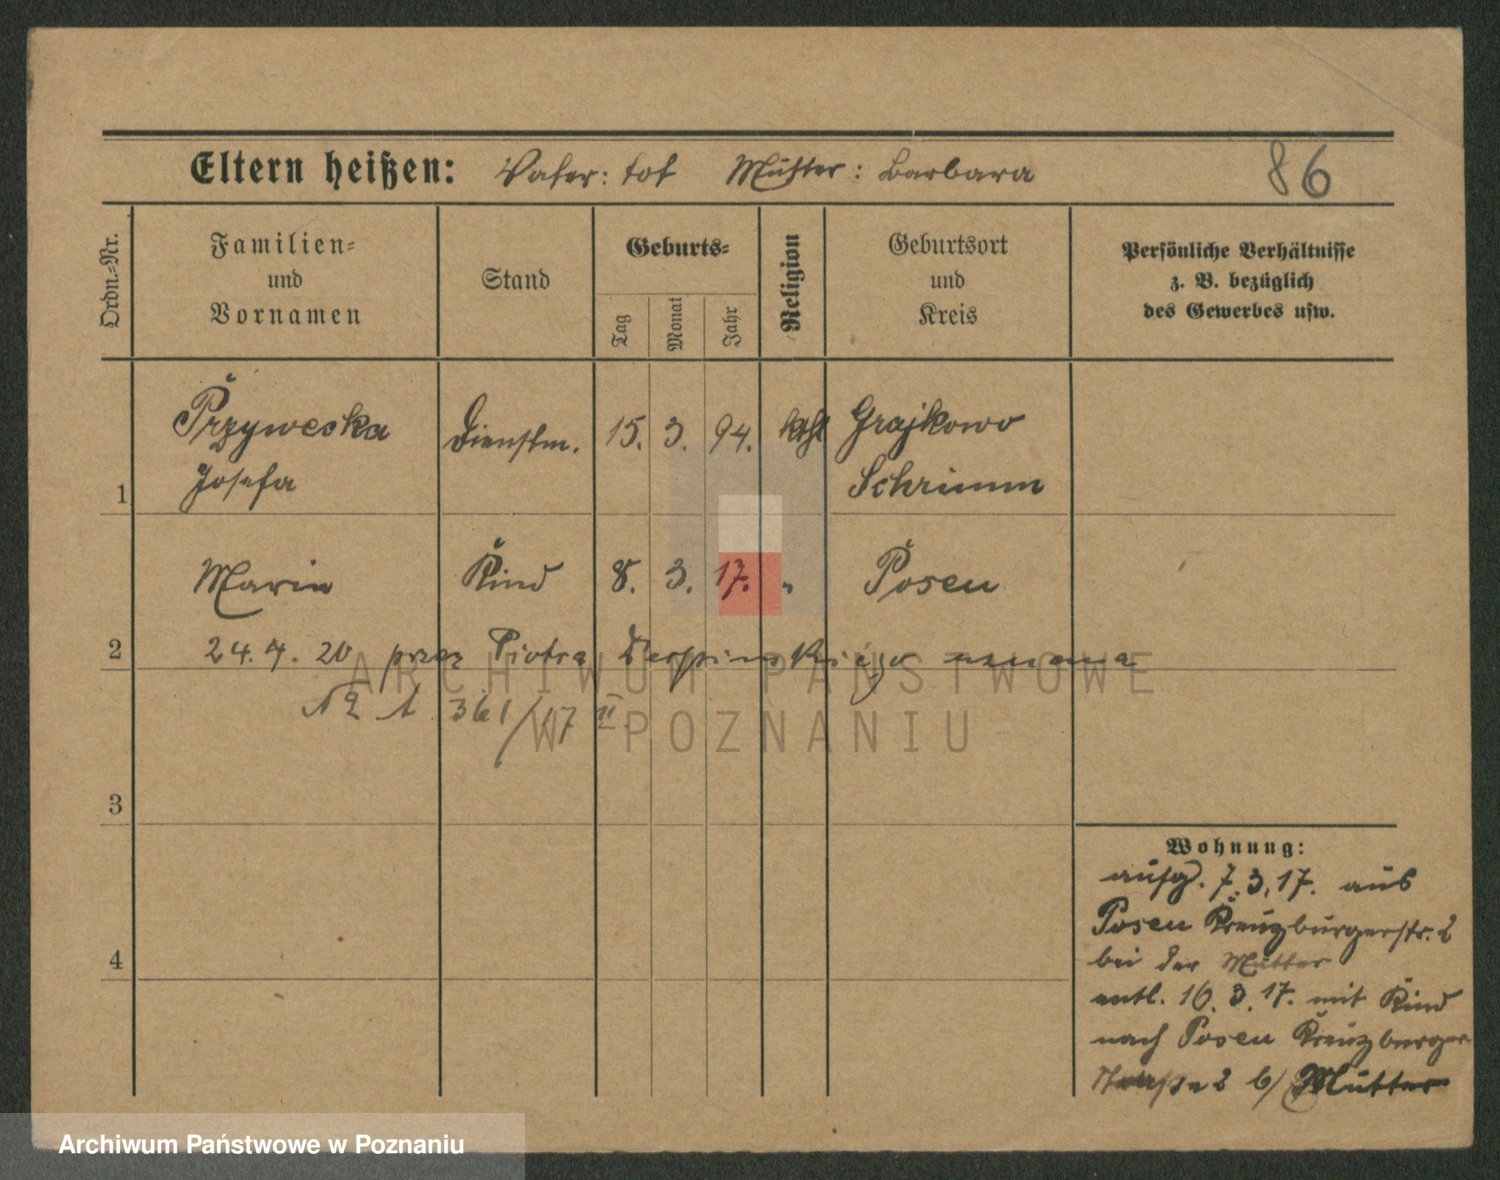 Eltern heißen: Vater: tot Mutter: Barbara 86
Ordn.-Nr.
Familien-
und
Vornamen
Stand
Geburts-
Tag
Monat
Jahr
Religion
Geburtsort
und
Kreis
Persönliche Verhältnisse
z. B. bezüglich
des Gewerbes usw.
Przyweska Dienstm. 15. 3. 94. kath Grajkowo
1 Josefa Schrimm
Marie Kind 8. 3. 17. " Posen
2 24. 4. 20 przez Piotra uznana
№ 361/17 II
3
4
Wohnung:
aufg. 7. 3. 17. aus
Posen Kreuzburgerstr. 2
bei der Mutter
entl. 16. 3. 17. mit Kind
nach Posen Kreuzburger
Straße 2 b/ Mutter
ARCHIWUM PAŃSTWOWE
W POZNANIU
Archiwum Państwowe w Poznaniu